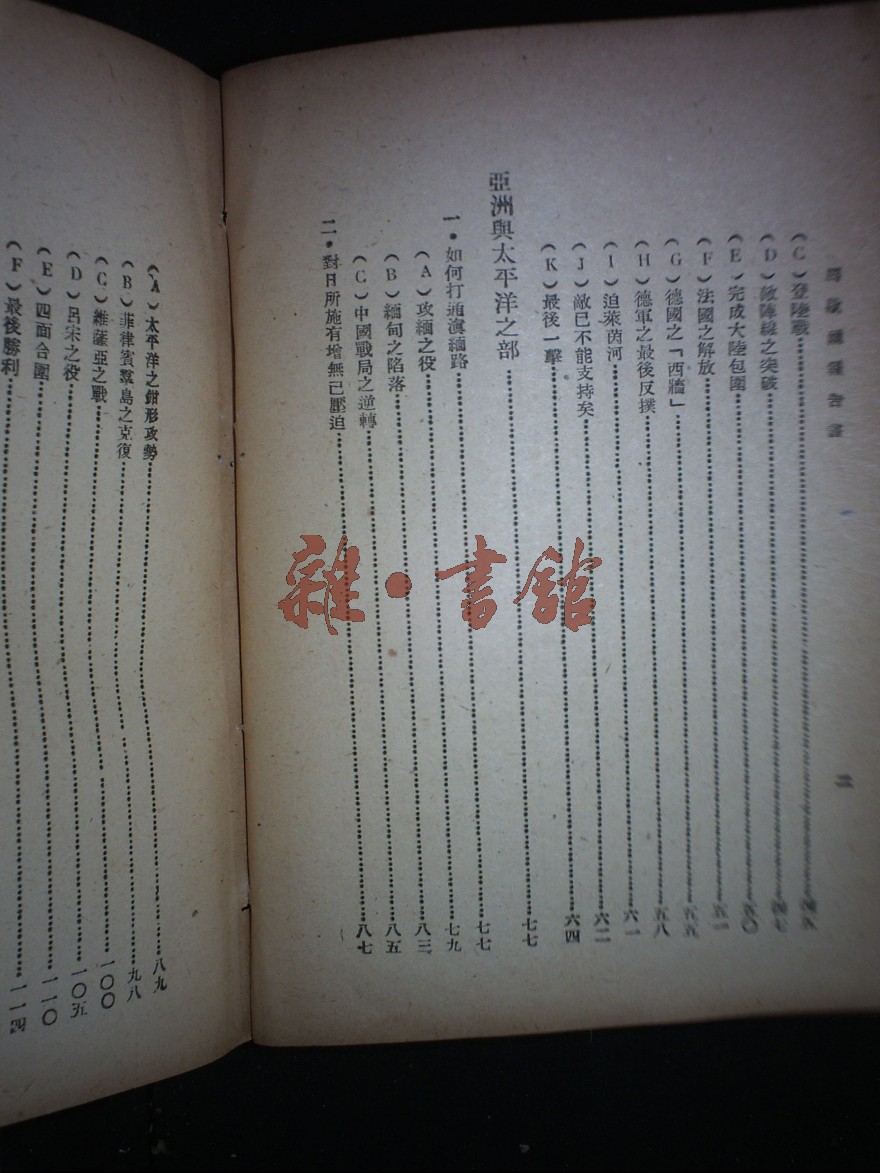 馬歇爾報告書
二
(C)登陸戰……四五
(D)敵陣線之突破……四七
(E)完成大陸包圍……五〇
(F)法國之解放……五一
(G)德國之「西牆」……五五
(H)德軍之最後反撲……五八
(I)迫萊茵河……六一
(J)敵已不能支持矣……六二
(K)最後一擊……六四
亞洲與太平洋之部……七七
一•如何打通滇緬路……七七
(A)攻緬之役……七九
(B)緬甸之陷落……八三
(C)中國戰局之逆轉……八五
二•對日所施有增無已壓迫……八七
(A)太平洋之鉗形攻勢……八九
(B)菲律賓羣島之克復……九八
(C)維薩亞之戰……一〇〇
(D)呂宋之役……一〇五
(E)四面合圍……一一〇
(F)最後勝利……一一四
雜•書館